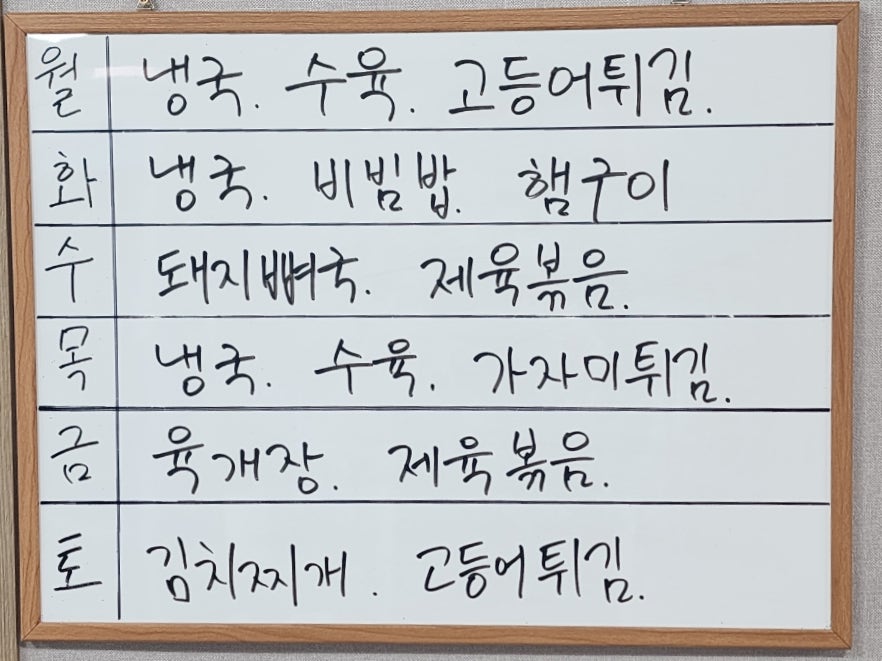 월 냉국. 수육. 고등어튀김.
화 냉국. 비빔밥. 햄구이
수 돼지뼈국. 제육볶음.
목 냉국. 수육. 가자미튀김.
금 육개장. 제육볶음.
토 김치찌개. 고등어튀김.